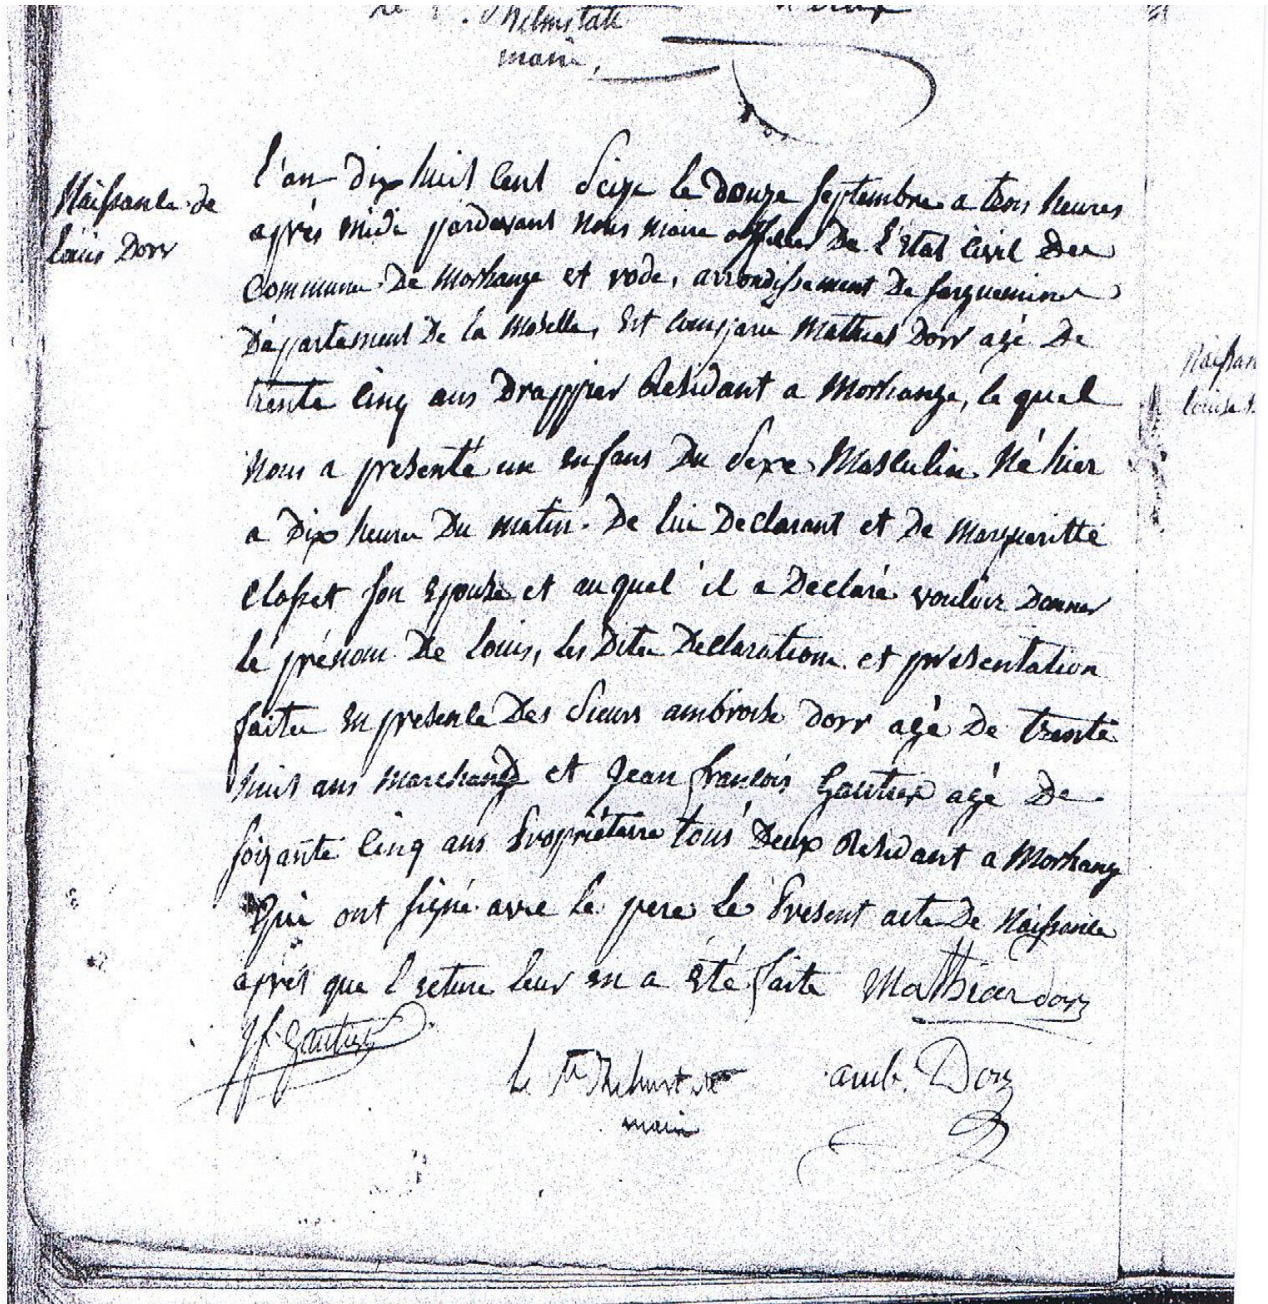 Helmstatt
maire,
Naissance de
Louis Dorr
L'an dix huit cent Seize le douze Septembre a trois heures
après midi pardevant nous maire officier De L'Etat Civil Des
Commune De Morhange et rode, arrondissement De Sarguemines
Département De la Moselle, Est comparu Mathias Dorr agé De
trente Cinq ans Drappier Residant a Morhange, le quel
Nous a presenté un enfans Du Sexe Masculin Né hier
a Dix heure Du matin De lui Declarant et De Margueritte
Closset son Epouse et auquel il a Declaré vouloir Donner
le prénom De Louis, les Dites Declarations et présentation
faites En presence Des Sieurs ambroise Dorr agé De trente
huit ans Marchand et Jean françois Gautier agé De
soixante Cinq ans Propriétaire tous Deux Residant a Morhange
Qui ont signé avec le pere le Present acte De Naissance
après que lecture leur en a été faite Mathias dorr
J f. Gautier
amb. Dorr
maire
Naissan
louise